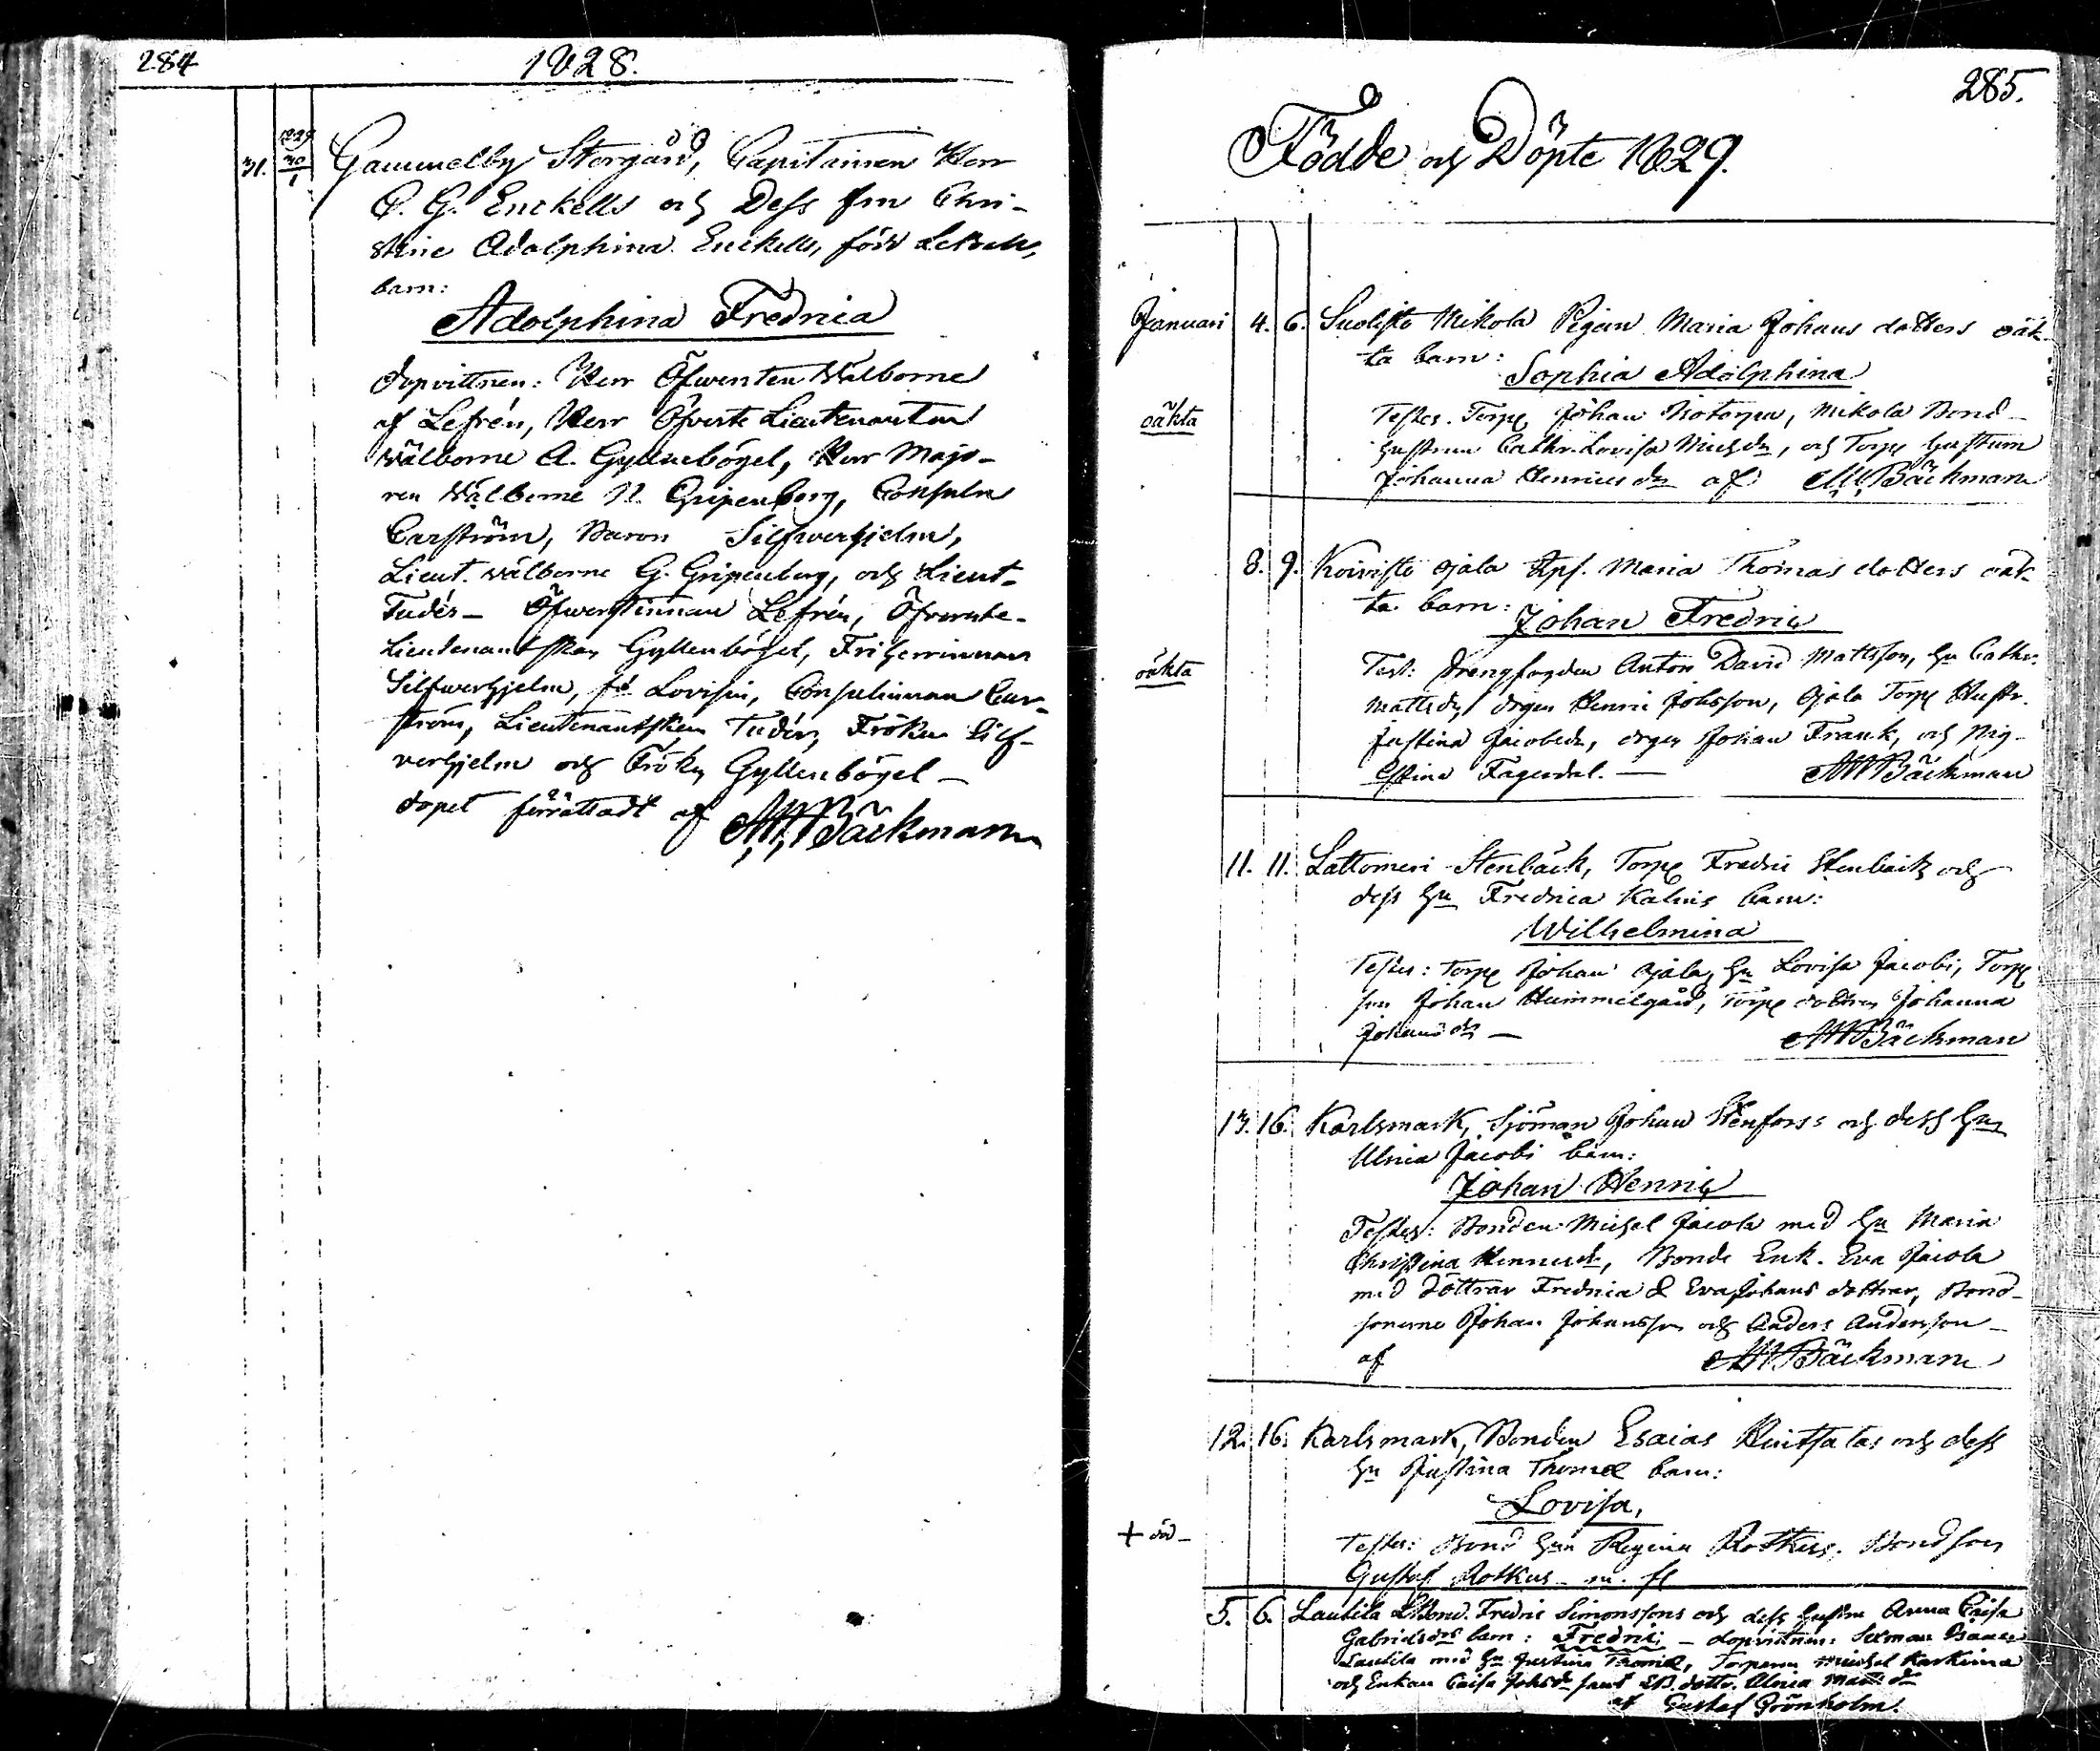 284
1828.
31. 1829 30/1 Gammelby Storgård, Capitainen Herr
C. G. Enckells och Dess fru Chri-
stine Adolphina Enckells, född
barn:
Adolphina Fredrica
dopvittnen: Herr Öfwersten Wälborne
af Lefrén, Herr Öfverste Lieutenanten
Wälborne A. Gyllenbögel, Herr Majo-
ren Wälborne N. Gripenberg, Consuln
Carström, Baron Silfwerhjelm,
Lieut. wälborne G. Gripenberg, och Lieut.
Tudér - Öfwerstinnan Lefrén, Öfwerste-
Lieutenantskan Gyllenbögel, Friherrinnan
Silfwerhjelm, Lovisin, Consulinnan Car-
ström, Lieutenantskan Tudér, Fröken Silf-
verhjelm och Fröken Gyllenbögel -
dopet förrättadt af Bäckman
285.
Födde och Döpte 1829.
Januari 4. 6. Suolisto Mikola Pigan Maria Johans dotters oäk-
ta barn:
Sophia Adolphina
oäkta
Testes. Torp Johan Isotorpa, Mikola Bond-
hustrun Cathr. Lovisa Michsdr, och Torp hustrun
Johanna Henricsdr af Bäckman
8. 9. Koivisto Ojala Maria Thomas dotters oäk-
ta barn:
Johan Fredric
oäkta
Test: drengfogden Anton David Mattsson, hu Cathr.
Mattsdr, drgen Henric Johsson, Ojala Torp Hustr.
Justina Jacobsdr, drgen Johan Frank, och Pig
Stina Fagerdal. - Bäckman
11. 11. Lattomeri Stenbäck, Torp Fredric Stenbäck och
dess hu Fredrica Kalnis barn:
Wilhelmina
Testes: Torp Johan Ojala, hu Lovisa Jacobi, Torp
son Johan Hummelgård, Torp dottren Johanna
Johansdr - Bäckman
13. 16. Karlsmark, Sjöman Johan Stenfors och dess hu
Ulrica Jacobi barn:
Johan Henric
Testes: Bonden Michel Jacola med hu Maria
Christina Henricsdr, Bonde Enk. Eva Jacola
med döttrar Fredrica & Eva Johans döttrar, Bond-
sönerne Johan Johansson och Anders Andersson -
af Bäckman
12. 16. Karlsmark, Bonden Esaias Ruitsalas och dess
hu Justina Thomæ barn:
Lovisa,
+ död -
Testes: Bond hun Regina Rotkus, Bondson
Gustaf Rotkus m. fl
5. 6. Lautila Fredric Simonssons och dess hustru Anna Caisa
Gabrielsdrs barn: Fredric - dopvittnen: Sexman Isaac
Lautila med hu Justina Thomæ, Torparen Michel Karkima
och Enkan Caisa Johsdr samt dottr. Ulrica Matsdr
af Gustaf Grönholm.